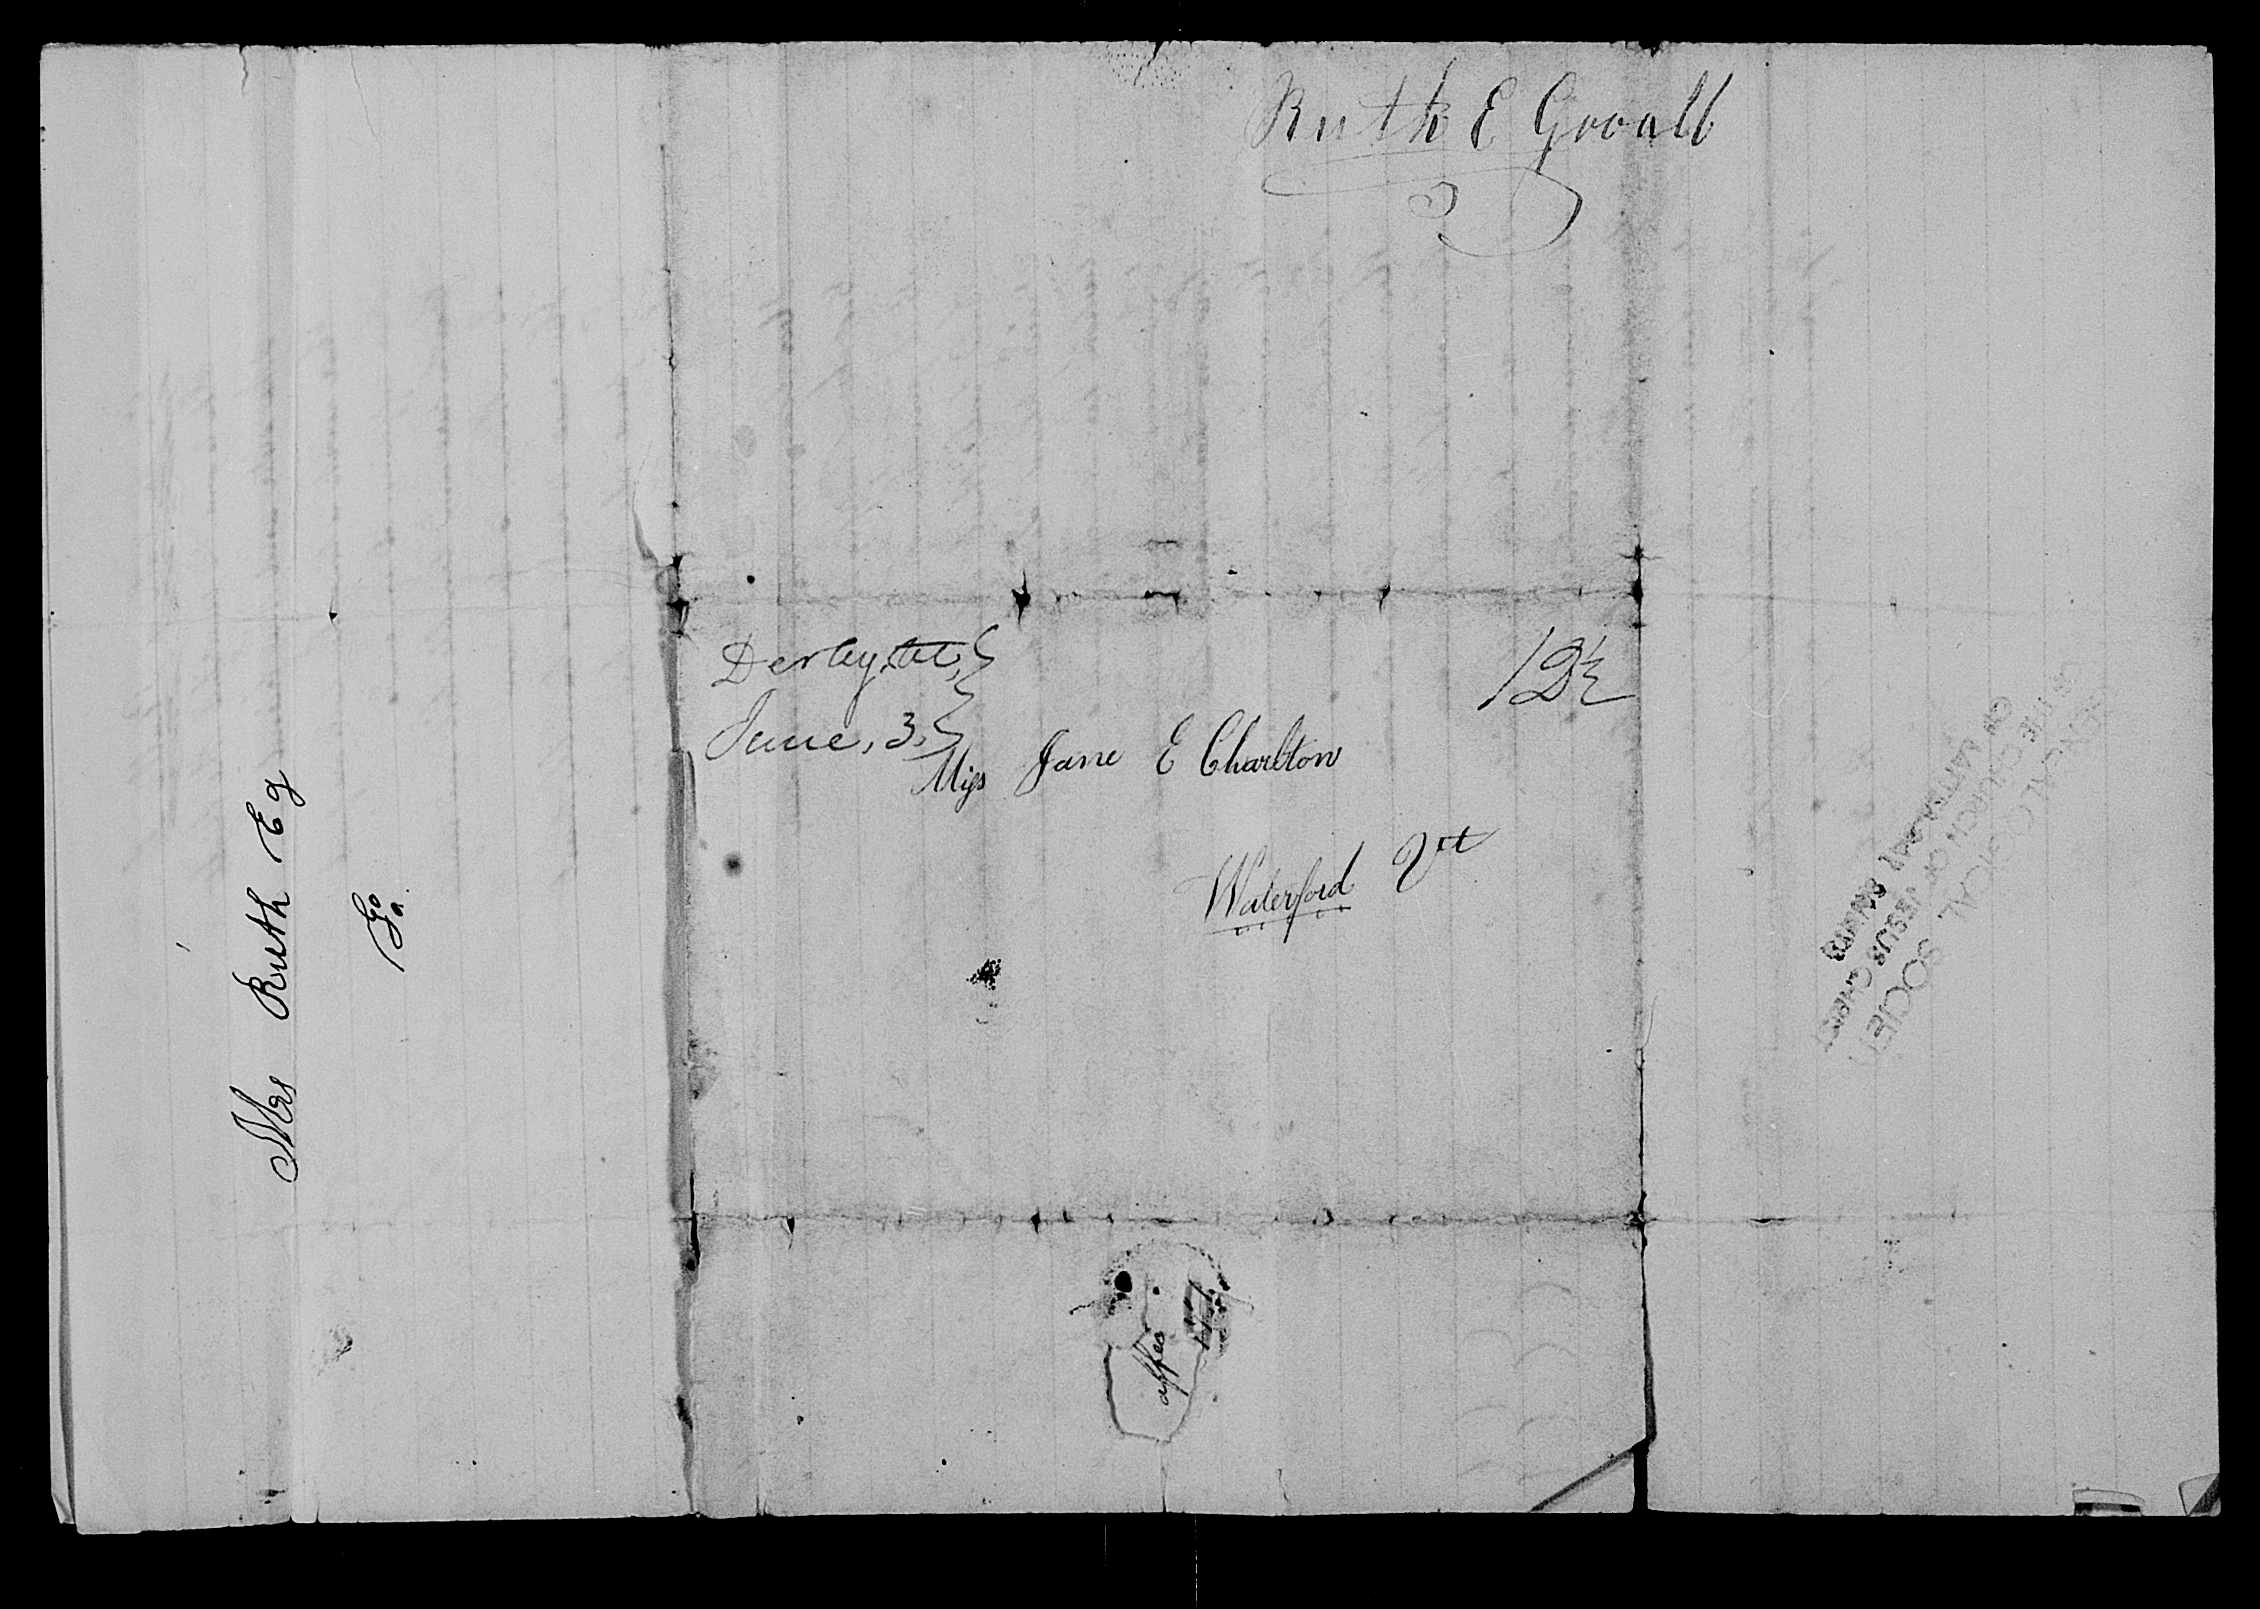 Ruth E Grow
Derby, Vt,
June, 3,
12½
Miss Jane E Charlton
Waterford Vt
Mrs Ruth E g
GENEALOGICAL SOCIETY
OF THE CHURCH OF JESUS CHRIST
OF LATTER-DAY SAINTS